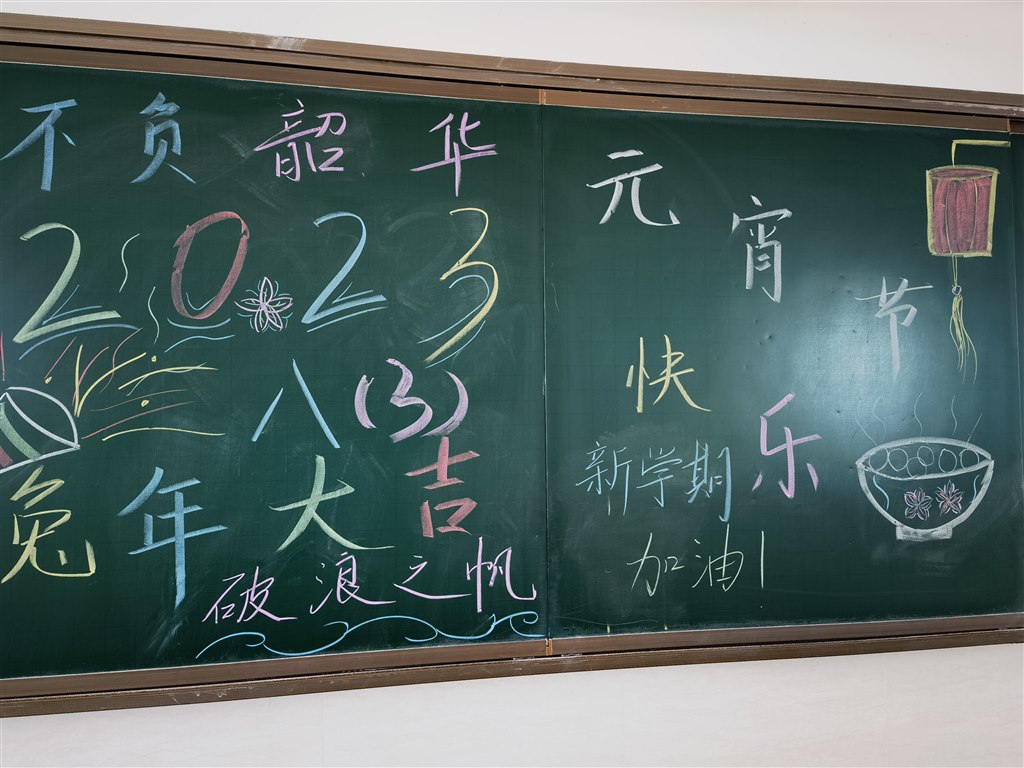 不负韶华
2023
八(3)
兔年大吉
破浪之帆
元宵节
快乐
新学期
加油!